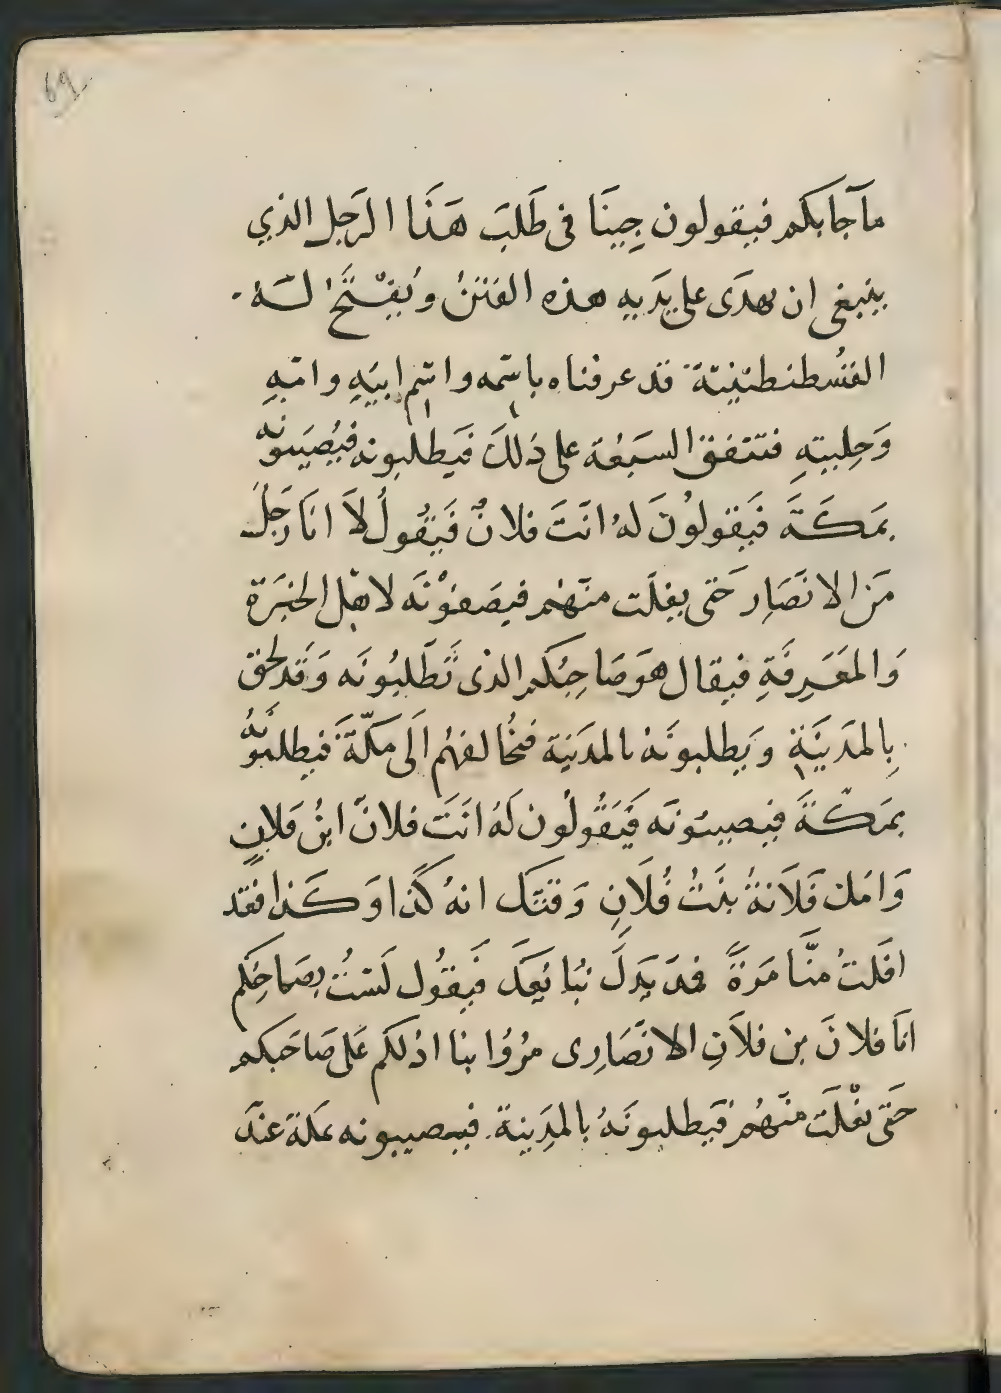 69
مآجابكم فيقولون جِينَا فى طَلبَ هَذَا الرَجل الذي
ينبغى ان تهدَى على يَدَيهِ هذه الفتنُ وَيُفتَحُ لـهُ
القسُطنطينيّة قد عرفناه باسْمه واسْم ابيَهِ وامّهِ
وَحِليتِهِ فتتفق السَبْعُة على ذلكَ فَيَطلبونه فيُصِيبونه
بمَكَةَ فَيَقولُونَ لهُ انتَ فلانٌ فَيقُولُ لاَ انَا رَجُلٌ
مَن الانصَارِ حَتى يفلَت منهُم فيصَفوْنَه لاهْل الخبَرَة
وَالمعَرِفَةِ فيقال هوَ صَاحِبُكم الذى تَطَلبُونَه وَقَد لحق
بِالمدَينَةِ وَيَطلبونَهُ بالمدَينة فيخُالفهُم الَى مَكّةَ فيطلبُونَهُ
بمَكّةَ فيصيبوَنَه فَيَقُولُون لَهُ انتَ فلانَ ابنُ فَلانٍ
وَامك فَلاَنةُ بنتُ فُلاَنِ وَفيَك ايه كَذا وَكَذا فقد
افَلتُ منّا مَرَةً فمدَ يَدكَ نبُايعكَ فَيقُول لَسْتُ بصَاحِبُكم
انَا فلانَ بن فلاَنِ الانَصَارِى مرُوُا بنا ادُلكم عَلى صَاحَبكم
حَتى يفْلَت منَهُم فَيطلبونَهُ بالمدَِينة فيصيبونه بمكة عندَ